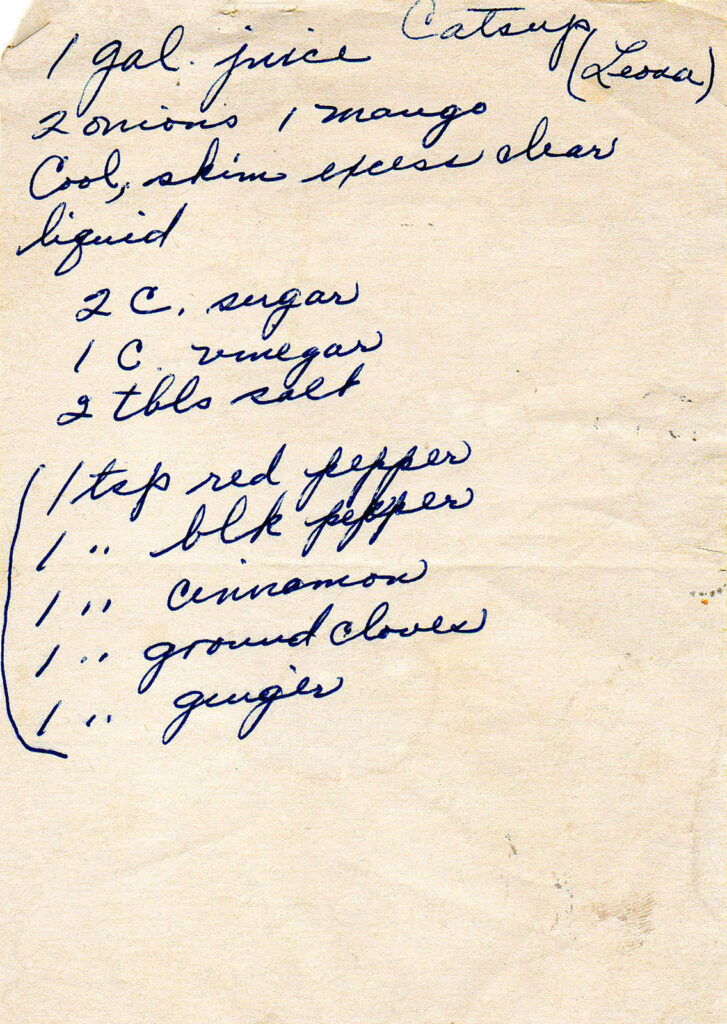 Catsup
(Leora)
1 gal. juice
2 onions 1 mango
Cool, skim excess clear
liquid
2 C. sugar
1 C. vinegar
2 tbls salt
1 tsp red pepper
1 " blk pepper
1 " cinnamon
1 " ground cloves
1 " ginger